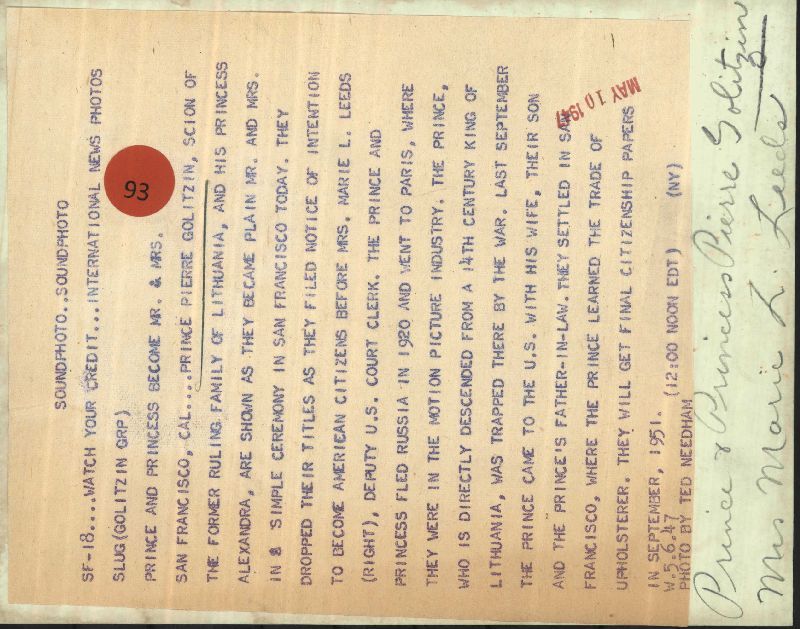 SOUNDPHOTO..SOUNDPHOTO
SF-18....WATCH YOUR CREDIT...INTERNATIONAL NEWS PHOTOS
SLUG(GOLITZIN GRP)
PRINCE AND PRINCESS BECOME MR. & MRS.
SAN FRANCISCO, CAL....PRINCE PIERRE GOLITZIN, SCION OF
THE FORMER RULING FAMILY OF LITHUANIA, AND HIS PRINCESS
ALEXANDRA, ARE SHOWN AS THEY BECAME PLAIN MR. AND MRS.
IN & SIMPLE CEREMONY IN SAN FRANCISCO TODAY. THEY
DROPPED THEIR TITLES AS THEY FILED NOTICE OF INTENTION
TO BECOME AMERICAN CITIZENS BEFORE MRS. MARIE L. LEEDS
(RIGHT), DEPUTY U.S. COURT CLERK. THE PRINCE AND
PRINCESS FLED RUSSIA IN 1920 AND WENT TO PARIS, WHERE
THEY WERE IN THE MOTION PICTURE INDUSTRY. THE PRINCE,
WHO IS DIRECTLY DESCENDED FROM A 14TH CENTURY KING OF
LITHUANIA, WAS TRAPPED THERE BY THE WAR. LAST SEPTEMBER
THE PRINCE CAME TO THE U.S. WITH HIS WIFE, THEIR SON
AND THE PRINCE'S FATHER-IN-LAW. THEY SETTLED IN SAN
FRANCISCO, WHERE THE PRINCE LEARNED THE TRADE OF
UPHOLSTERER. THEY WILL GET FINAL CITIZENSHIP PAPERS
IN SEPTEMBER, 1951. (12:00 NOON EDT) (NY)
W.5.6.47
PHOTO BY TED NEEDHAM
93
MAY 10 1947
Prince & Princess Pierre Golitzin
Mrs Marie L. Leeds